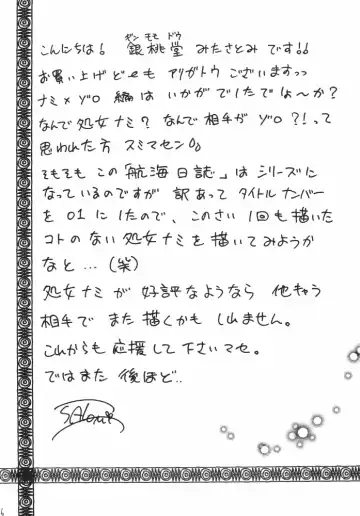 こんにちは! 銀桃堂 みたさとみ です!!
ギン モモ ドウ
お買い上げど〜も アリガトウ ございますっっ
ナミ×ゾロ 編は いかが でしたでしょ〜か?
なんで処女ナミ? なんで相手が ゾロ?!って
思われた方 スミマセン!!
そもそも この「航海日誌」は シリーズに
なっているのですが 訳あって タイトルナンバー
を 01 にしたので、このさい 1回も描いた
コトの ない 処女ナミ を 描いてみようか
なと…(笑)
処女ナミ が 好評なようなら 他キャラ
相手で また描くかも しれません。
これからも 応援して 下さいマセ。
ではまた 後ほど..